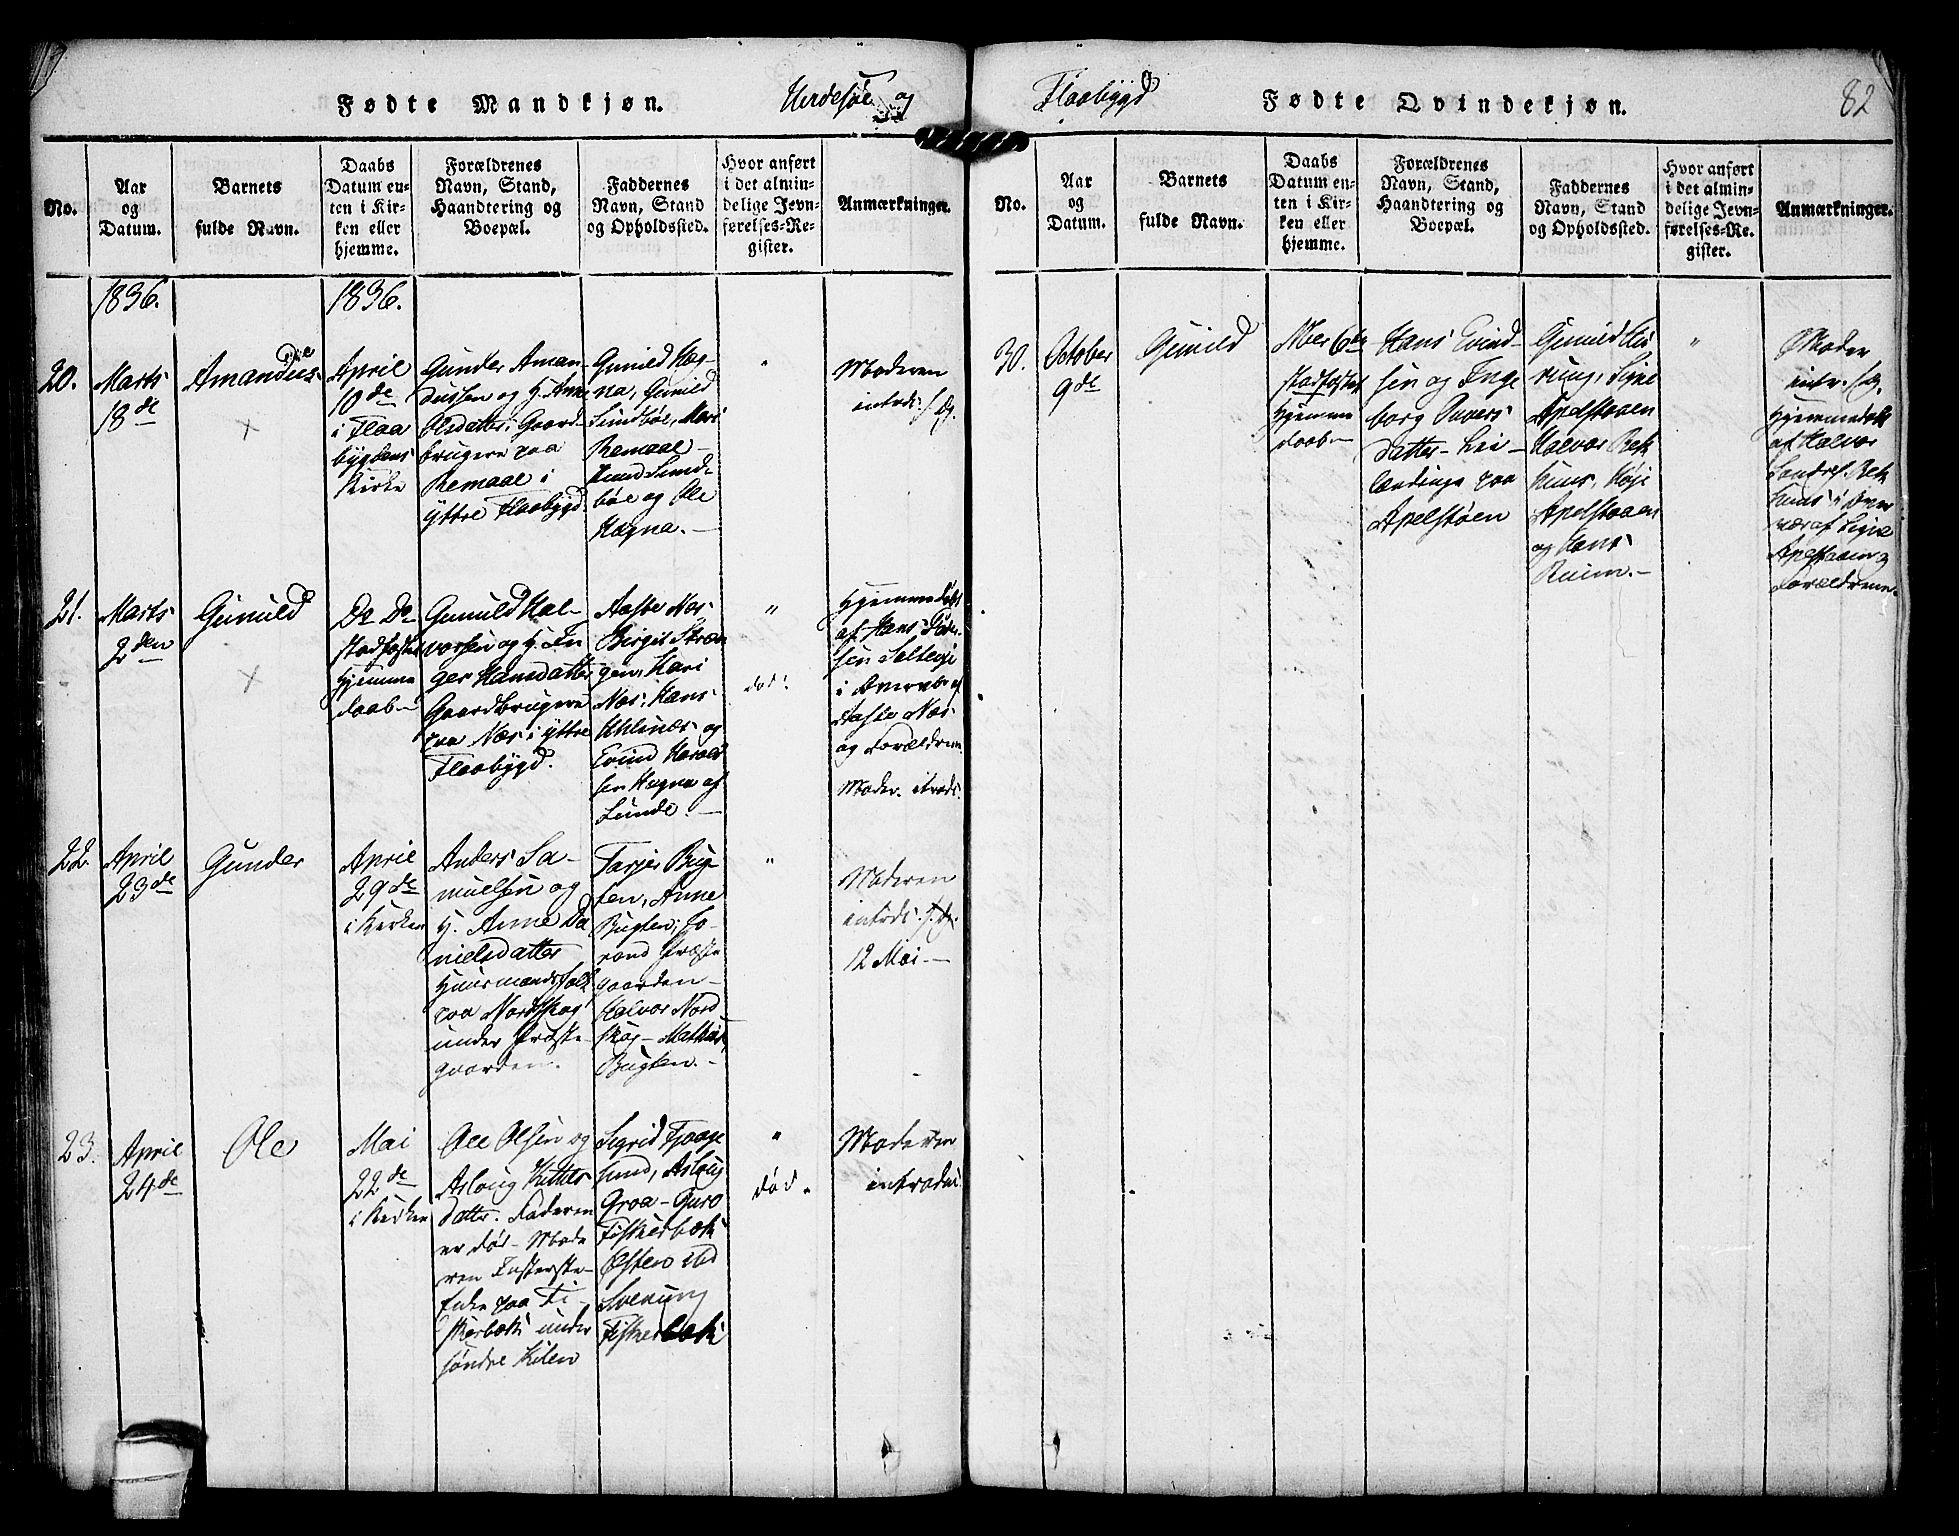 Fødte Mandkjøn.
Fødte Qvindekjøn.
Flaabygd
82
No.
Aar
og
Datum.
Barnets
fulde Navn.
Daabs
Datum en-
ten i Kir-
ken eller
hjemme.
Forældrenes
Navn, Stand,
Haandtering og
Boepæl.
Faddernes
Navn, Stand
og Opholdssted.
Hvor anført
i det almin-
delige Jevn-
førelses-Re-
gister.
Anmærkninger.
1836.
1836.
20.
Marts
18de
Amandus
April
10de
i Flaa
bygdens
Kirke
Gunder Aman-
dussen og H. Anne
Olsdatter Gaard-
brugere paa
Remaae i
Yttre Flaabygd
Gunild Hog-
na, Gunild
Sundbøe, Mari
Remaae
Knud Sund-
bøe og Ole
Hogna.
"
Moderen
introds. s. Dg.
21.
Marts
2den
Gunuld
Do Do
stadfæstet
Hjemme
daab
Gunuld Hal-
vorsen og H. In
ger Hansdatter
Gaardbrugere
paa Næs i Yttre
Flaabygd.
Aaste Næs
Birgit Stran
gen, Kari
Næs, Hans
Uhlnæs og
Evind Harald
sen Hogna af
Lunde.
"
død.
Hjemmedøbt
af Hans
sen
i Overvær af
Aaste Næs
og Forældrene
Moder. itrods.
22.
April
23de
Gunder
April
29de
i Kirken
Anders Sa-
muelsen og
H. Anne Da
nielsdatter
Huusmandsfolk
paa Nordskog
under Præste-
gaarden.
Tarjer Bug-
ten, Anne
Bugten, To-
rond Præste
gaarden
Halvor Nord
skog - Mathias
Bugten.
"
Moderen
introds. s. D.
12 Mai
23.
April
24de
Ole
Mai
22de
i Kirken
Ole Olsen og
Aslaug Kittels
datter. Faderen
er død - Mode
ren
Enke paa Fi-
skerbæk under
søndre Kilen
Sigrid Tjaage
sund, Aslaug
Groa - Guro
Fiskerbæk
Østen ibd
Svenung
Fiskerbæk
"
død.
Moderen
introdus.
No.
Aar
og
Datum.
Barnets
fulde Navn.
Daabs
Datum en-
ten i Kir-
ken eller
hjemme.
Forældrenes
Navn, Stand,
Haandtering og
Boepæl.
Faddernes
Navn, Stand
og Opholdssted.
Hvor anført
i det almin-
delige Jevn-
førelses-Re-
gister.
Anmærkninger.
30.
October
9de
Gunild
Nber 6te
stadfæstet
Hjemme
daab
Hans Evind-
sen og Inge
borg Iver­s
datter Lei-
lændinge paa
Apelstøen
Gunuld
Signe
Apelstøen
Halvor Bek
huus,
Apelstøen
og Hans
"
Moder
intr. s. Dg.
Hjemmedøbt
af Halvor
Bek
huus i Over
vær af Signe
Apelstøen og
Forældrene